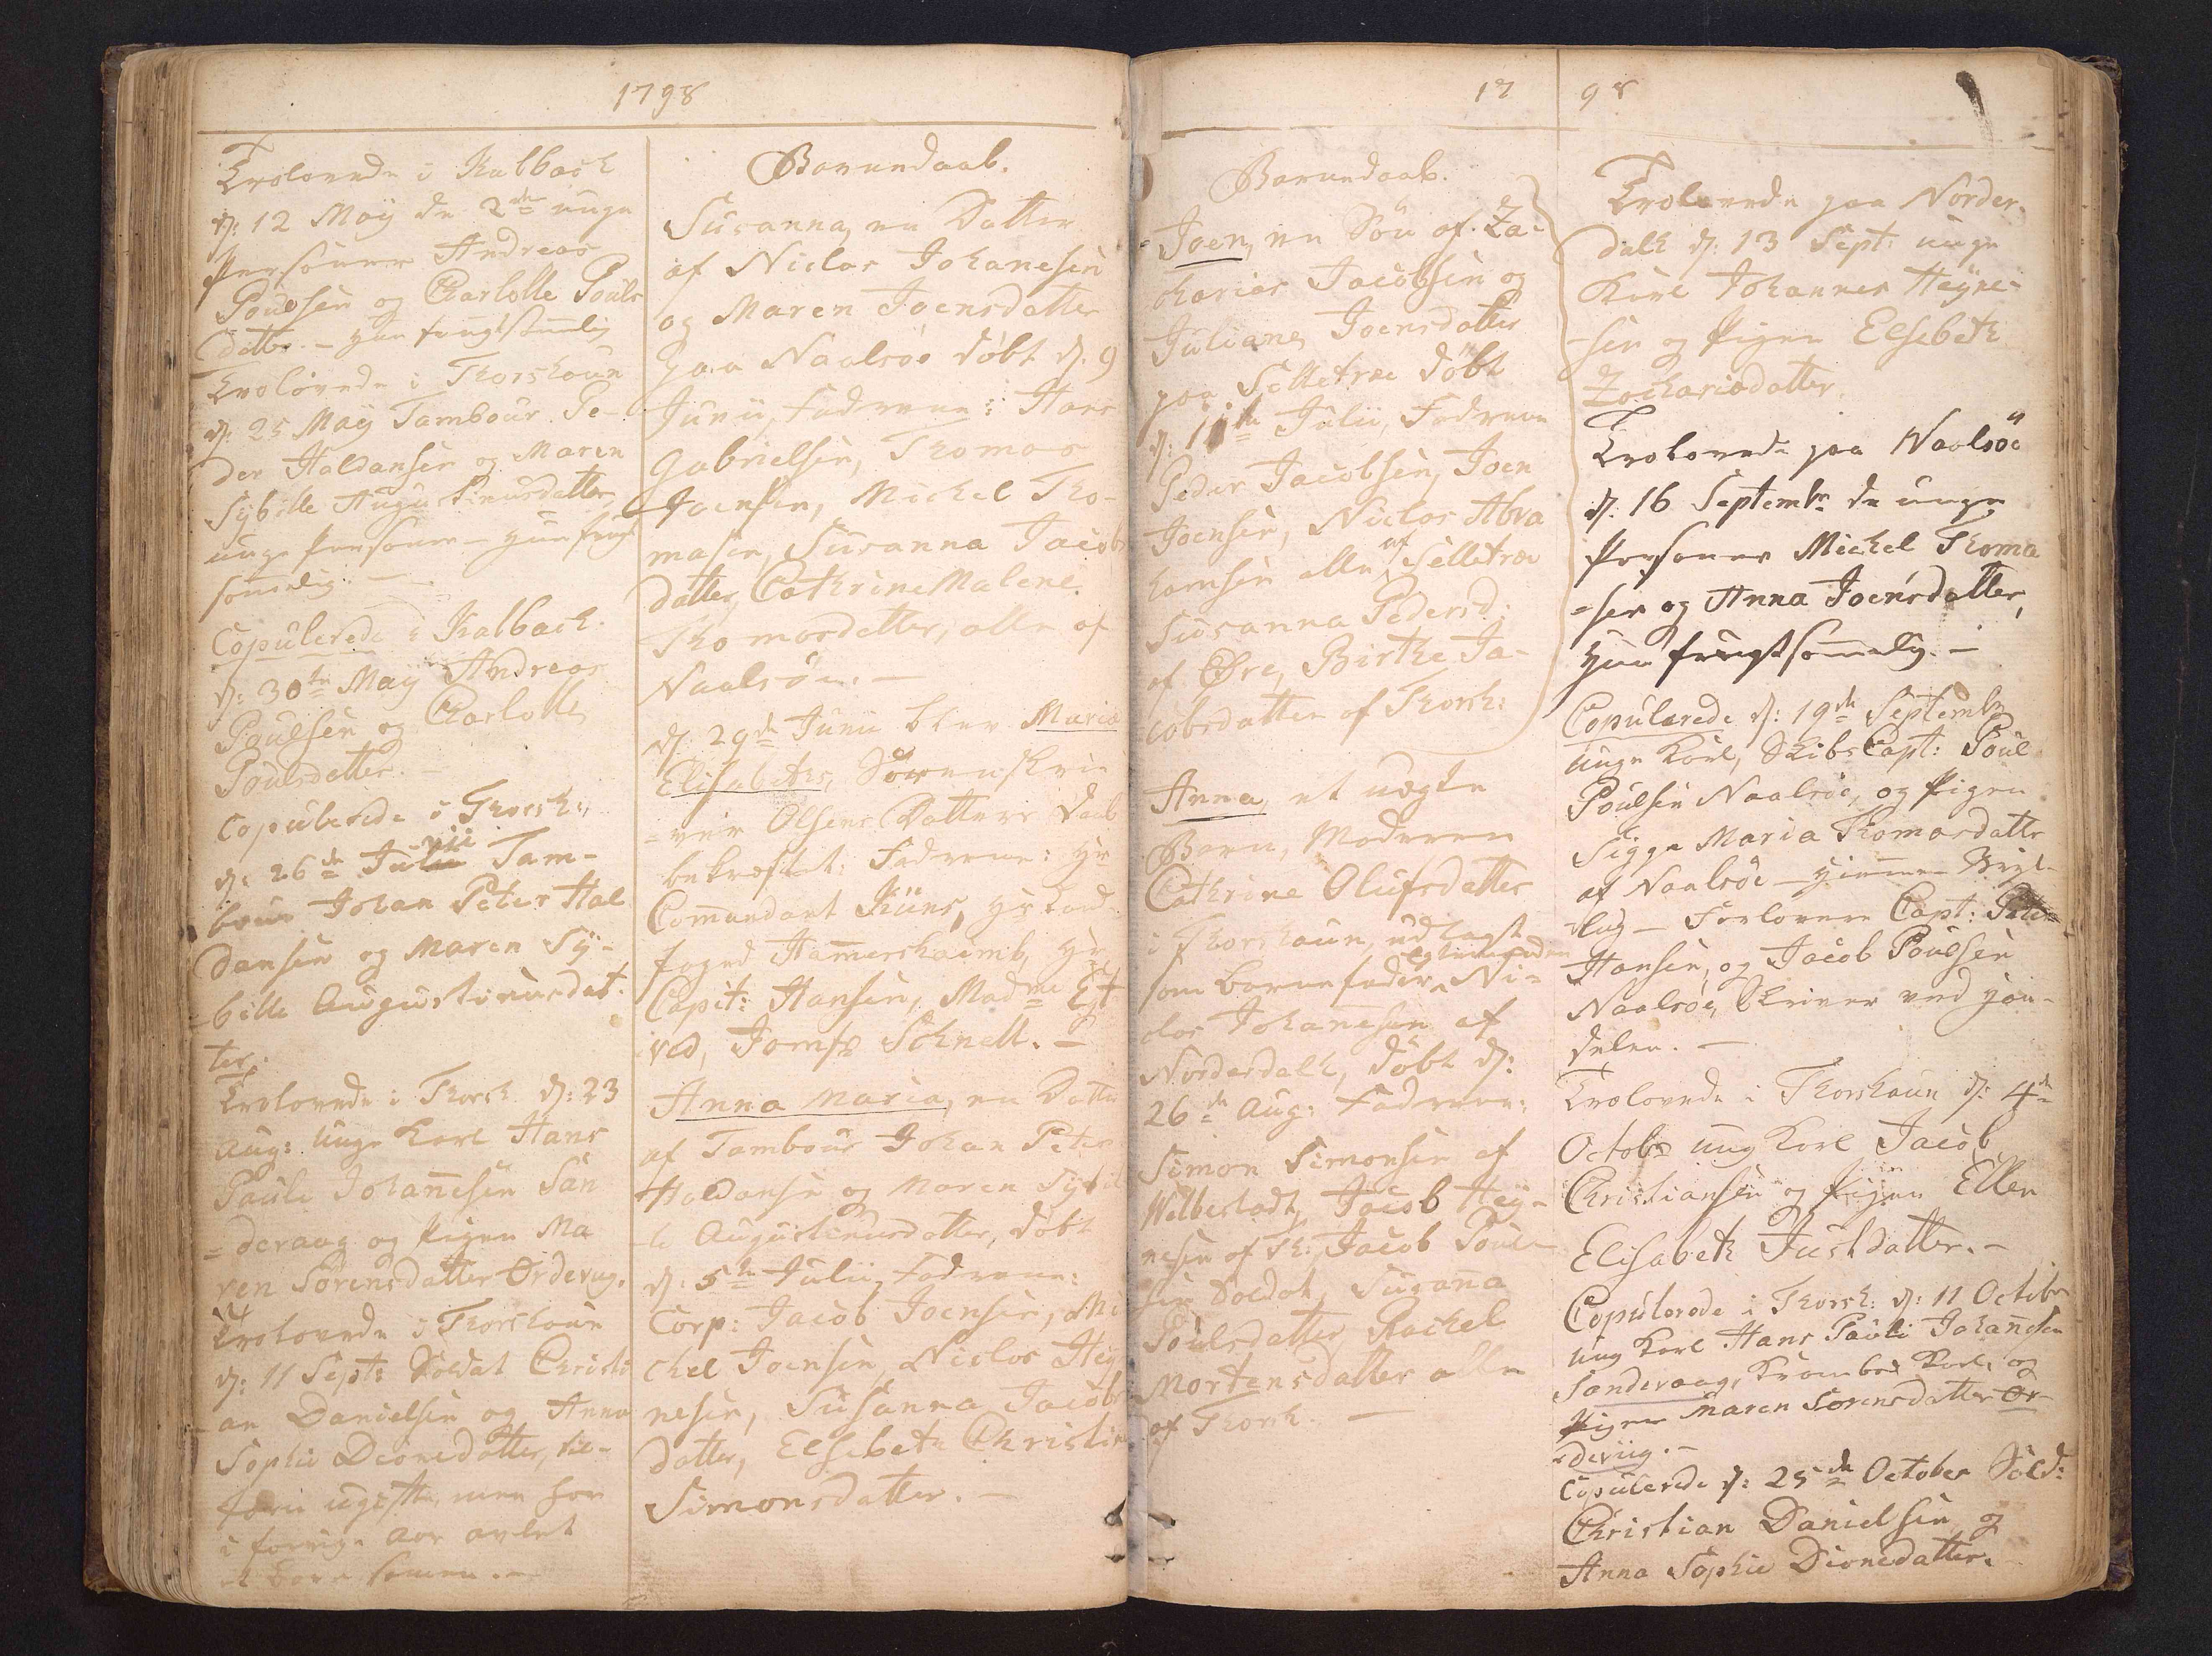 1798
Trolovede i Kalbach
d: 12 Maÿ de 2de unge
Personer Andreas
Poulsen og Charlotte Pouls
datter. – hun frugtsommelig
Trolovede i Thorshaun
d: 25 Maÿ Tambour Pe-
der Haldansen og Maren
Sybille Augustinusdatter,
unge Personer – hun frugt
sommelig. –
Copulerede i Kalbach
d: 30te Maÿ Andreas
Poulsen og Charlotte
Poulsdatter. –
Copulerede i Thorsh:
d: 26de Julii Tam-
bour Johan Peter Hal
dansen og Maren Sÿ-
bille Augustinusdat-
ter.
Trolovede i Thorsh. d: 23
Aug: Unge Karl Hans
Pauli Johannesen San
=deraag og Pigen Ma
ren Sørensdatter Ørdevug.
Trolovede i Thorshaun
d: 11 Sept: Soldat Christi
an Danielsen og Anna
Sophie Dionedatter, til-
forn ugifte, men har
i forrige Aar avlet
et Barn sammen. –
Barnedaab.
Susanna, en Datter
af Niclas Johanesen
og Maren Joensdatter
paa Naalsøe døbt d. 9
Junii, Fadrene: Hans
Gabrielsen, Thomas
Joensen, Michel Tho-
masen, Susanna Jacobs
datter, Cathrine Malene
Thomasdatter, alle af
Naalsøe. –
d. 29de Junii blev Maria
Elisabeths, Sørenskri
=ver Olsens Datters Daab
bekræftet: Fadrene: Hr
Commandant Küns, Hr Land
foged Hammershaimb, Hr
Capit: Hansen, Madme Est
ved, Jomfr Schnell. –
Anna Maria, en Datter
af Tambour Johan Peter
Haldansen og Maren Sybil
le Augustinusdatter, døbt
d: 5te Julii, Fadrene:
Corp: Jacob Joensen, Mi
chel Joensen, Niclas Hey
nesen, Susanna Jacobs
datter, Elsebeth Christin
Simonsdatter. –
17 98
Barnedaab.
Joen, en Søn af Za-
charias Jacobsen og
Juliane Joensdatter
paa Selletræ døbt
d: 11te Julii, Fadrene
Peder Jacobsen, Joen
Joensen, Niclas Abra
hamsen alle af Selletræ
Susanna Pedersd:
af Øre, Birthe Ja-
cobsdatter af Thorsh:
Anna, et uægte
Barn, Moderen
Cathrine Olufsdatter
i Thorshaun, udlagt
som barnefader Ni-
clas Johanesen af
Norderdalh, døbt d:
26de Aug: Fadrene:
Simon Simonsen af
Welbestadt, Jacob Heÿ-
nesen af Th:, Jacob Poul-
sen Soldat, Susanna
Poulsdatter, Rachel
Mortensdatter alle
af Thorsh. –
Trolovede paa Norder-
dalh d: 13 Sept: unge
Karl Johannes Heÿne-
-sen og Pigen Elsebeth
Zachariadatter.
Trolovede paa Naalsöe
d. 16 Septembr de unge
Personer Michel Thoma
=sen og Anna Joensdatter,
hun frugtsommelig. –
Copulerede d: 19de Septembr
unge Karl, Skibs Capt: Poul
Poulsen Naalsöe, og Pigen
Sigga Maria Thomasdatter
af Naalsöe – hiemme Bryl-
lup – Forlovere Capt: Peter
Hansen, og Jacob Poulsen
Naalsöe, Skriver ved Han-
delen. –
Trolovede i Thorshaun d: 4de
Octobr ung Karl Jacob
Christiansen og Pigen Ellen
Elisabeth Justdatter. –
Copulerede i Thorsh: d: 11 Octobr
ung Karl Hans Pauli Johannesen
Sanderaag, Krambod Karl og
Pigen Maren Sorensdatter Ør-
devüg. –
Copulerede d: 25de October Sold:
Christian Danielsen og
Anna Sophie Dionedatter.